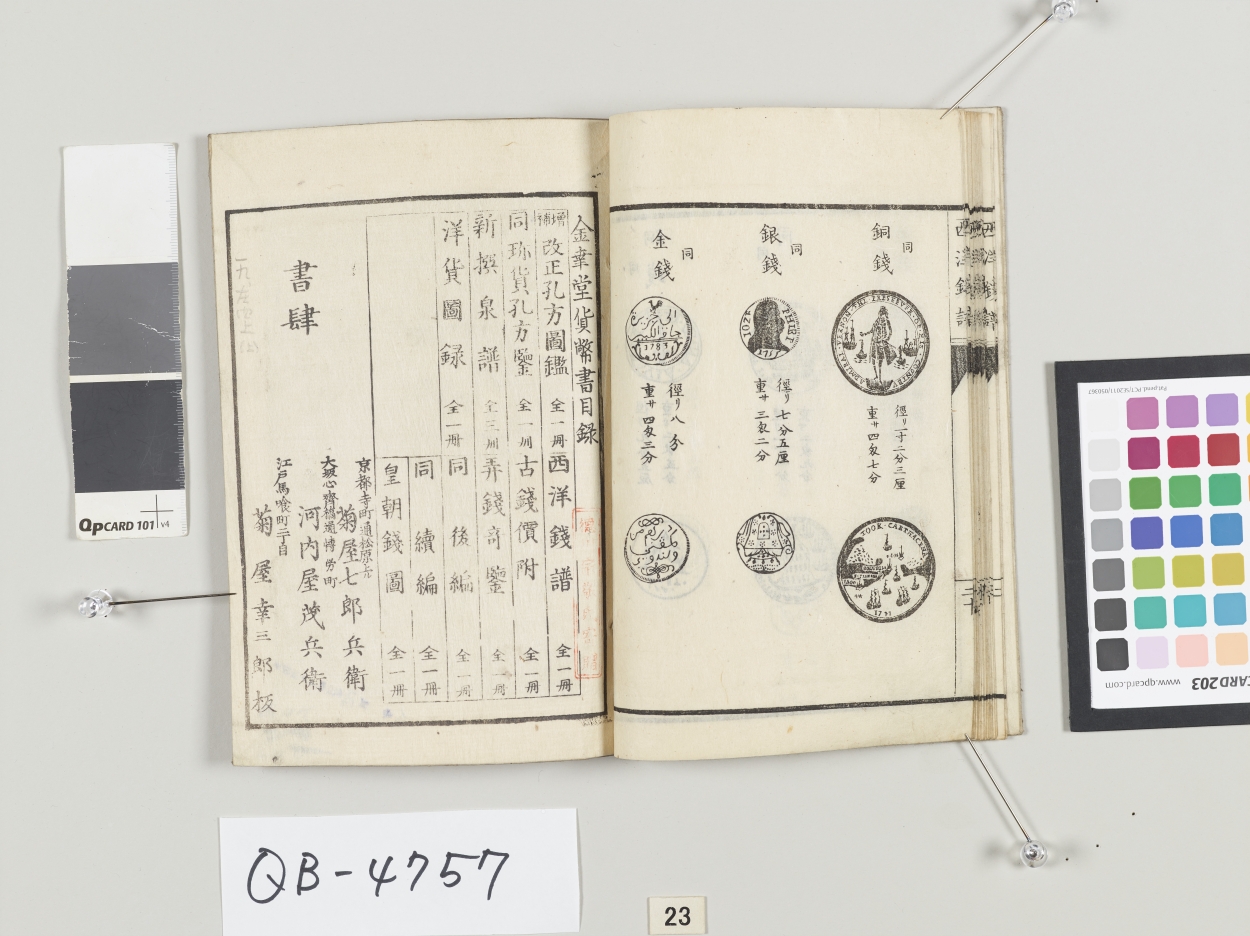 同
銅錢
徑リ一寸二分三厘
重サ四匁七分
TOOK CARTHAGENA
1741
同
銀錢
1717
徑リ七分五厘
重サ三匁二分
同
金錢
1789
徑リ八分
重サ四匁三分
西洋錢譜
金幸堂貨幣書目録
増補改正孔方圖鑑 全一冊
西洋錢譜 全一冊
同珎貨孔方鑒 全一冊
古錢價附 全一冊
新撰泉譜 全三冊
弄錢奇鑒 全一冊
洋貨圖録 全一冊
同後編 全一冊
同續編 全一冊
皇朝錢圖 全一冊
書肆
京都寺町通松原上
菊屋七郎兵衛
大坂心齊橋通博労町
河内屋茂兵衛
江戸馬喰町二丁目
菊屋幸三郎板
QPCARD 101 v4
QB-4757
23
CARD 203
www.qpcard.com